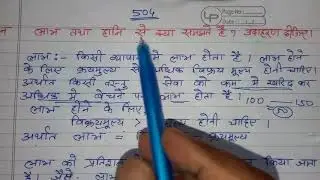 504
LP Page No.:
Date:
न लाभ तथा हानि से क्या समझते हैं ? उदाहरण दीजिए।
लाभ :- किसी व्यापार में लाभ होता है। लाभ होने
के लिए क्रयमूल्य से अधिक विक्रय मूल्य होनी चाहिए
अर्थात किसी वस्तु सेवा को कम में खरीद कर
अधिक में बेचने पर लाभ होता है। 100 150
लाभ होने के लिए, 50
विक्रयमूल्य > मूल्य होनी चाहिए
अर्थात लाभ = क्रयमूल्य
लाभ को प्रतिशत में किया जाता
है। जैसे- लाभ